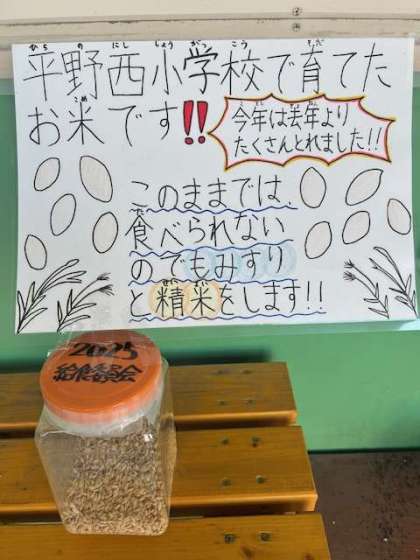 平野西小学校で育てた
お米です!!
今年は去年より
たくさんとれました!!
このままでは
食べられない
のでもみすり
と精米をします!!
2025
給食委員会